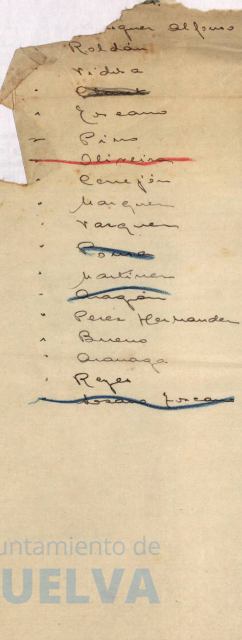 Alfonso
Roldán
Toscano
Pino
Oliveira
Cerrejón
Marquez
Vazquez
Martinez
Aragón
Perez Hernandez
Bueno
Aranaga
Reyes
Toscano
untamiento de
UELVA